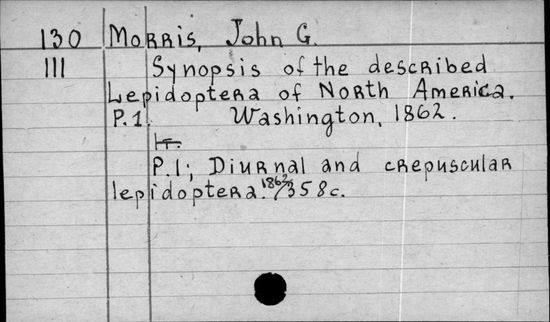 130 Morris, John G.
111 Synopsis of the described
Lepidoptera of North America.
P.1. Washington, 1862.
P.1; Diurnal and crepuscular
lepidoptera. 1862/358c.